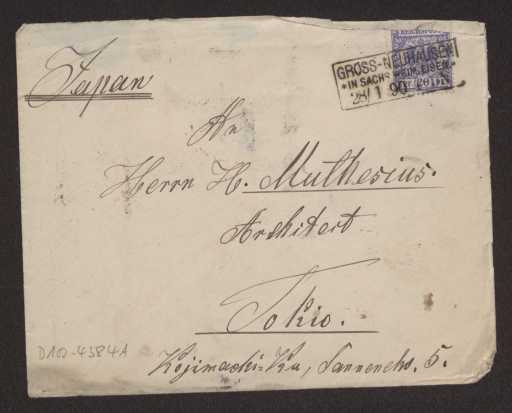 Japan
GROSS-NEUHAUSEN
* IN SACHS.
28/1 90
An
Herrn H. Muthesius.
Architect
Tokio.
Kojimachi-Ku, Sannencho. 5.
D102-4384A